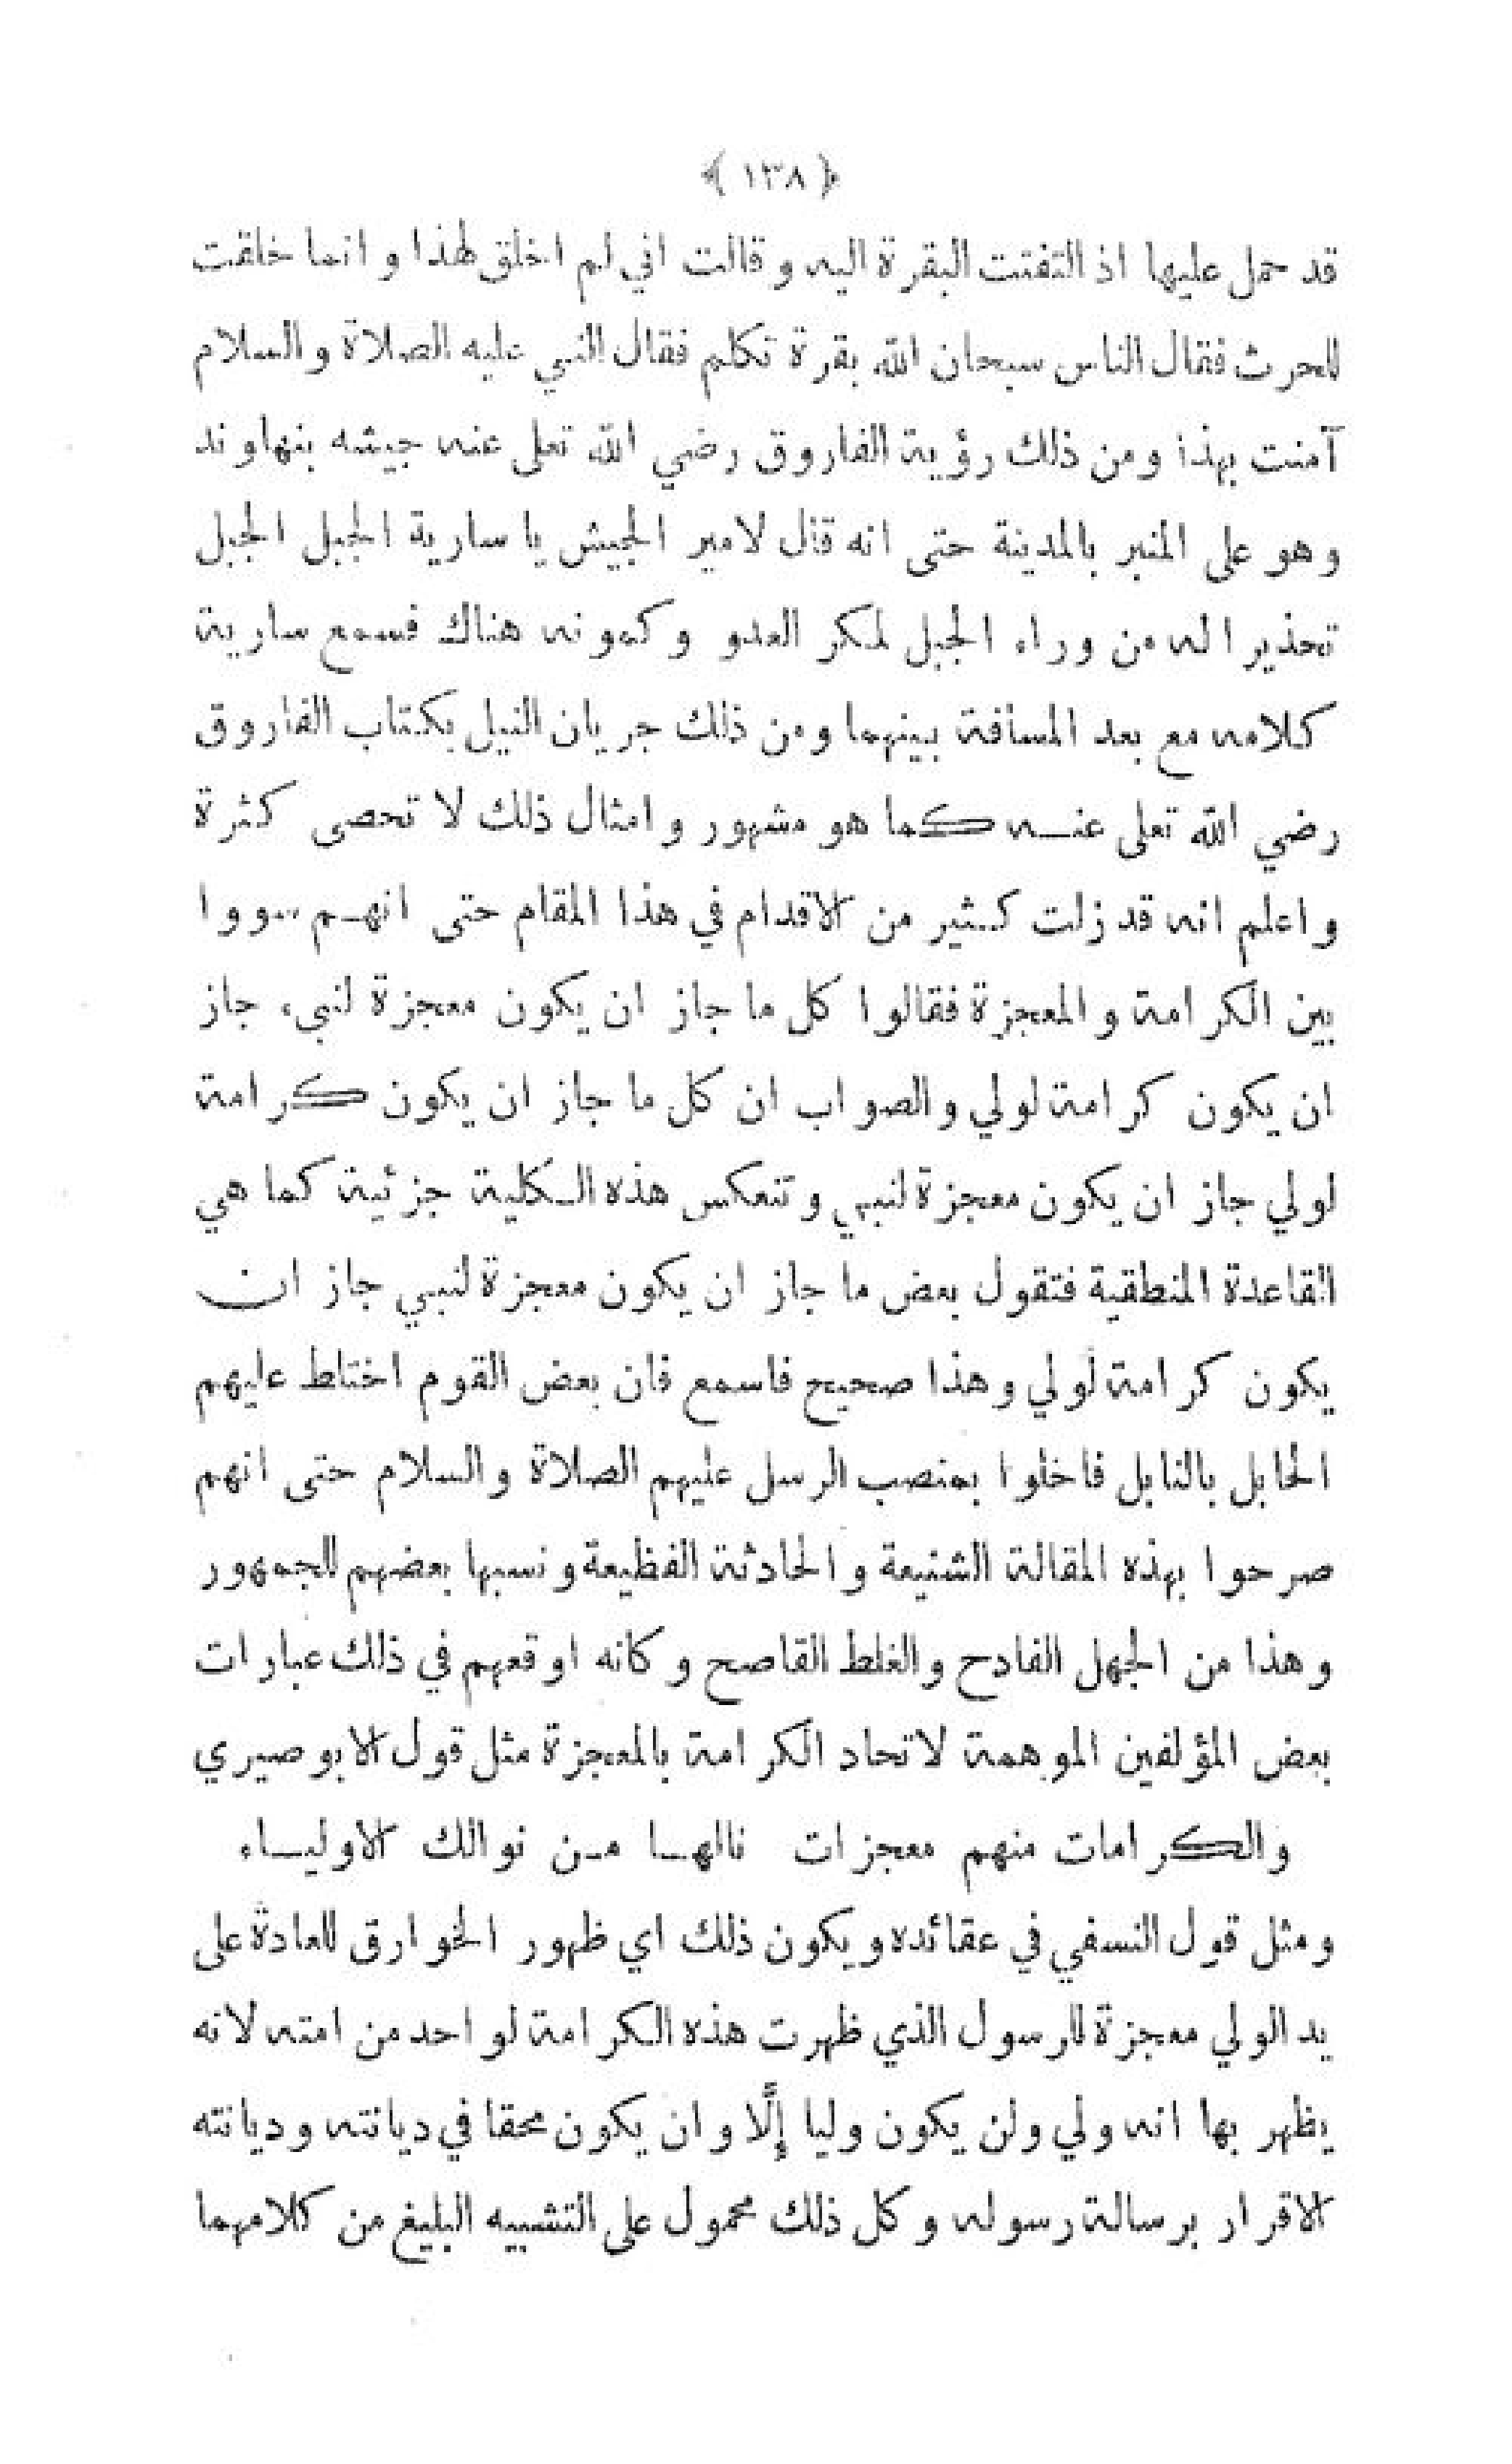 ﴿ ١٣٨ ﴾
قد حمل عليها اذ التفتت البقرة اليه وقالت اني لم اخلق لهذا وانما خلقت
للحرث فقال الناس سبحان الله بقرة تكلم فقال النبي عليه الصلاة والسلام
آمنت بهذا ومن ذلك رؤية الفاروق رضي الله تعلى عنه جيشه بنهاوند
وهو على المنبر بالمدينة حتى انه قال لامير الجيش يا سارية الجبل الجبل
تحذيرا له من وراء الجبل لمكر العدو وكمونه هناك فسمع سارية
كلامه مع بعد المسافة بينهما ومن ذلك جريان النيل بكتاب الفاروق
رضي الله تعلى عنه كما هو مشهور وامثال ذلك لا تحصى كثرة
واعلم انه قد زلت كثير من الاقدام في هذا المقام حتى انهم سووا
بين الكرامة والمعجزة فقالوا كل ما جاز ان يكون معجزة لنبيء جاز
ان يكون كرامة لولي والصواب ان كل ما جاز ان يكون كرامة
لولي جاز ان يكون معجزة لنبي وتنعكس هذه الكلية جزئية كما هي
القاعدة المنطقية فتقول بعض ما جاز ان يكون معجزة لنبي جاز ان
يكون كرامة لولي وهذا صحيح فاسمع فان بعض القوم اختلط عليهم
الحابل بالنابل فاخلوا بمنصب الرسل عليهم الصلاة والسلام حتى انهم
صرحوا بهذه المقالة الشنيعة والحادثة الفظيعة ونسبها بعضهم للجمهور
وهذا من الجهل الفادح والغلط القاصح وكانه اوقعهم في ذلك عبارات
بعض المؤلفين الموهمة لاتحاد الكرامة بالمعجزة مثل قول الابوصيري
والكرامات منهم معجزات نالها من نوالك الاولياء
ومثل قول النسفي في عقائده ويكون ذلك اي ظهور الخوارق للعادة على
يد الولي معجزة للرسول الذي ظهرت هذه الكرامة لواحد من امته لانه
يظهر بها انه ولي ولن يكون وليا إلَّا وان يكون محقا في ديانته وديانته
الاقرار برسالة رسوله وكل ذلك محمول على التشبيه البليغ من كلامهما